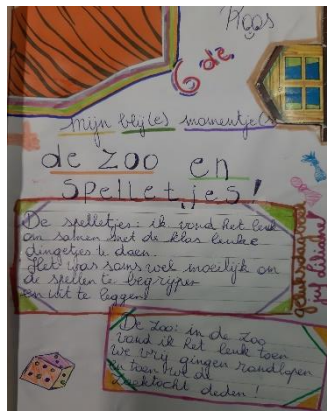 Roos
6de
mijn blij(e) momentje(s)
de zoo en
spelletjes!
De spelletjes: ik vond het leuk
om samen met de klas leuke
dingetjes te doen.
Het was soms ook moeilijk om
de spellen te begrijpen
en uit te leggen
geluksdagboek
juf Liliane!
De Zoo: in de Zoo
vond ik het leuk toen
we vrij gingen rondlopen
en toen we de
zoektocht deden!